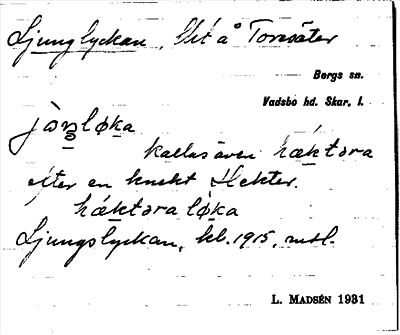 Ljunglyckan, Ut å Torvsäter
Bergs sn.
Vadsbo hd. Skar. l.
jòŋløka
kallas även hæktəra
efter en knekt Hekter.
hæktəra løka
Ljungslyckan, kl. 1915, mtl.
L. MADSÉN 1931